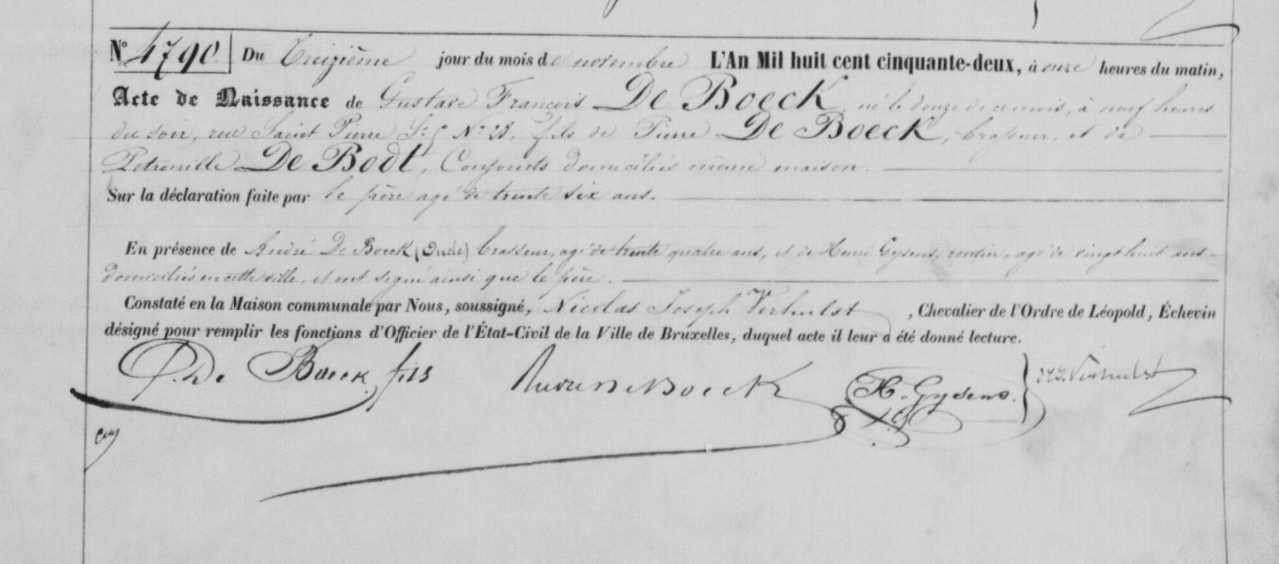 N° 4790 Du treizième jour du mois de novembre L'An Mil huit cent cinquante-deux, à onze heures du matin,
Acte de Naissance de Gustave François De Boeck, né le douze de ce mois, à neuf heures
du soir, rue Saint Pierre N° 28, fils de Pierre De Boeck, brasseur, et de
Petronille De Bodt, Conjoints domiciliés même maison.
Sur la déclaration faite par le père agé de trente six ans.
En présence de André De Boeck (Oncle) brasseur, agé de trente quatre ans, et de Henri Gydens, rentier, agé de vingt huit ans
domiciliés en cette ville, et ont signé ainsi que le père.
Constaté en la Maison communale par Nous, soussigné, Nicolas Joseph Verhulst, Chevalier de l'Ordre de Léopold, Échevin
désigné pour remplir les fonctions d'Officier de l'État-Civil de la Ville de Bruxelles, duquel acte il leur a été donné lecture.
P. De Boeck fils André De Boeck H. Gydens. Verhulst